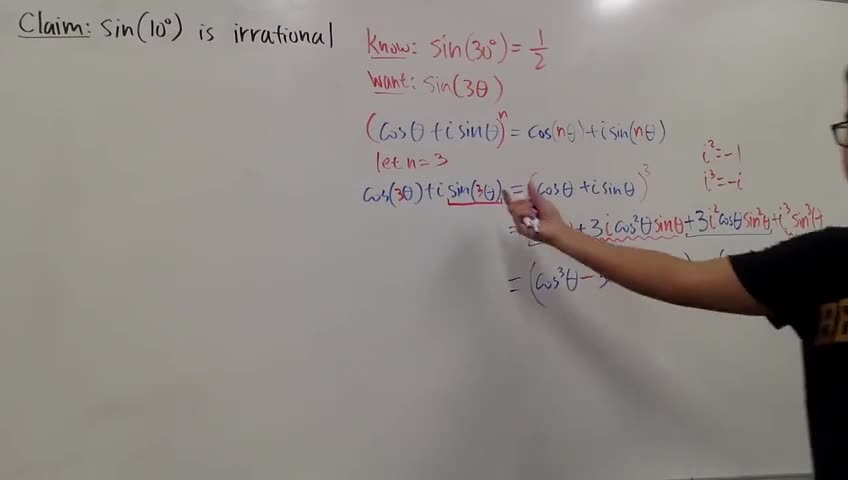 Claim: sin(10°) is irrational
Know: sin(30°) = 1/2
Want: sin(3θ)
(cosθ + i sinθ)^n = cos(nθ) + i sin(nθ)
let n = 3
i² = -1
i³ = -i
cos(3θ) + i sin(3θ) = (cosθ + i sinθ)³
= + 3i cos²θ sinθ + 3i² cosθ sin²θ + i³ sin³(
= (cos³θ - 3